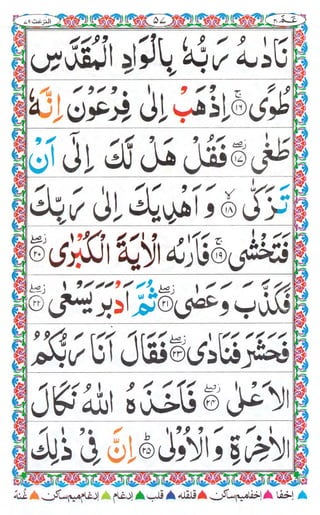 عمّ ۳۰ ۵۷ النّٰزعٰت ۷۹
نَادٰىهُ رَبُّهٗ بِالْوَادِ الْمُقَدَّسِ
طُوًى ۝۱۶ۚ اِذْهَبْ اِلٰى فِرْعَوْنَ اِنَّهٗ
طَغٰى ۝۱۷ۖ فَقُلْ هَلْ لَّكَ اِلٰٓى اَنْ
تَزَكّٰى ۝۱۸ۙ وَاَهْدِيَكَ اِلٰى رَبِّكَ
فَتَخْشٰى ۝۱۹ۚ فَاَرٰىهُ الْاٰيَةَ الْكُبْرٰى ۝۲۰ۖ
فَكَذَّبَ وَعَصٰى ۝۲۱ۖ ثُمَّ اَدْبَرَ يَسْعٰى ۝۲۲ۖ
فَحَشَرَ فَنَادٰى ۝۲۳ۖ فَقَالَ اَنَا رَبُّكُمُ
الْاَعْلٰى ۝۲۴ۖ فَاَخَذَهُ اللّٰهُ نَكَالَ
الْاٰخِرَةِ وَالْاُوْلٰى ۝۲۵ؕ اِنَّ فِىْ ذٰلِكَ
اخفا اخفامیم ساکن قلقلہ قلب ادغام ادغام میم ساکن غنہ